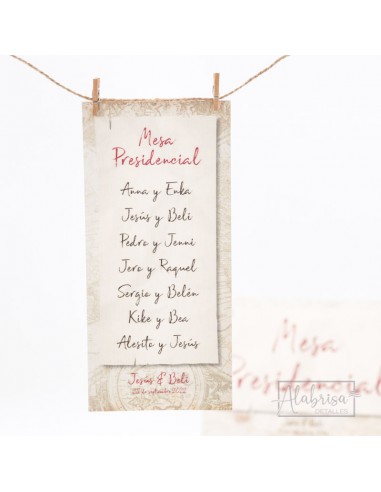 Mesa
Presidencial
Anna y Enka
Jesús y Beli
Pedro y Jenni
Jero y Raquel
Sergio y Belén
Kike y Bea
Alesito y Jesús
Jesús & Beli
Mesa
Presidencial
Alabrisa
DETALLES